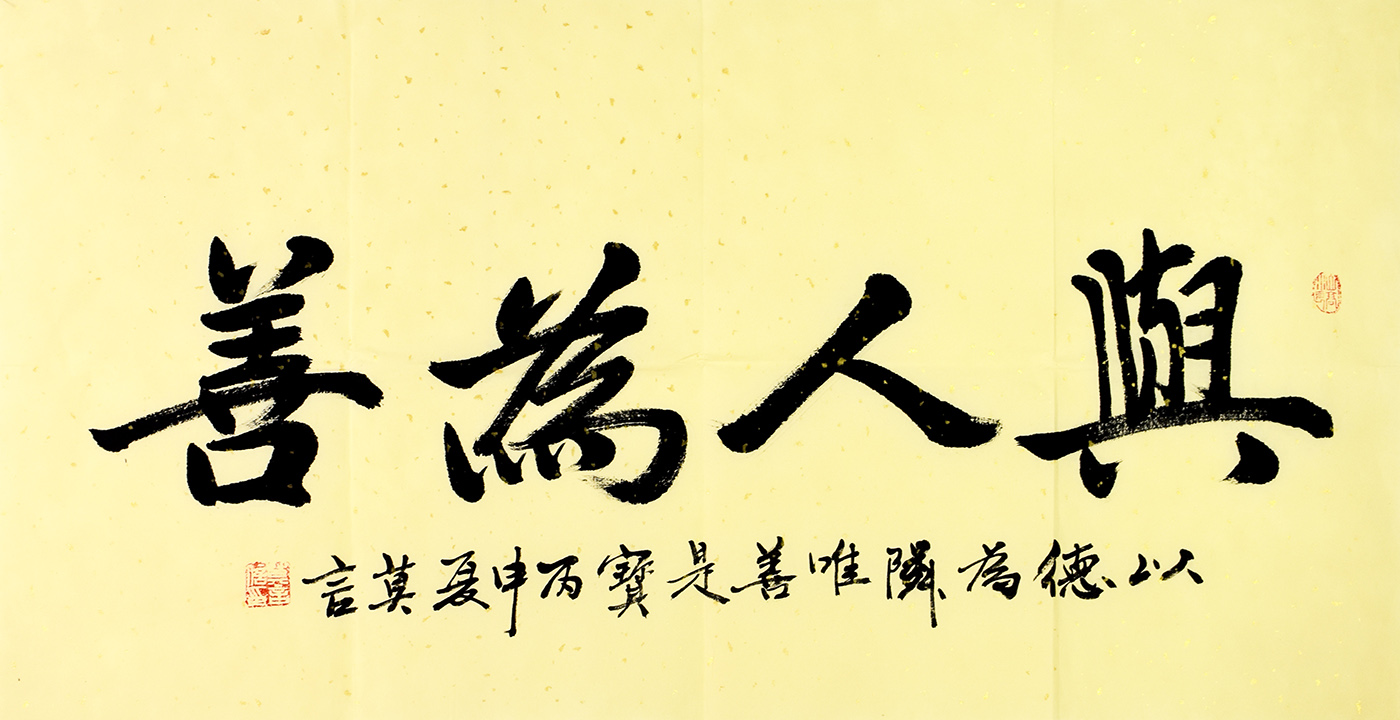 與人為善
以德為隣唯善是寶丙申夏莫言